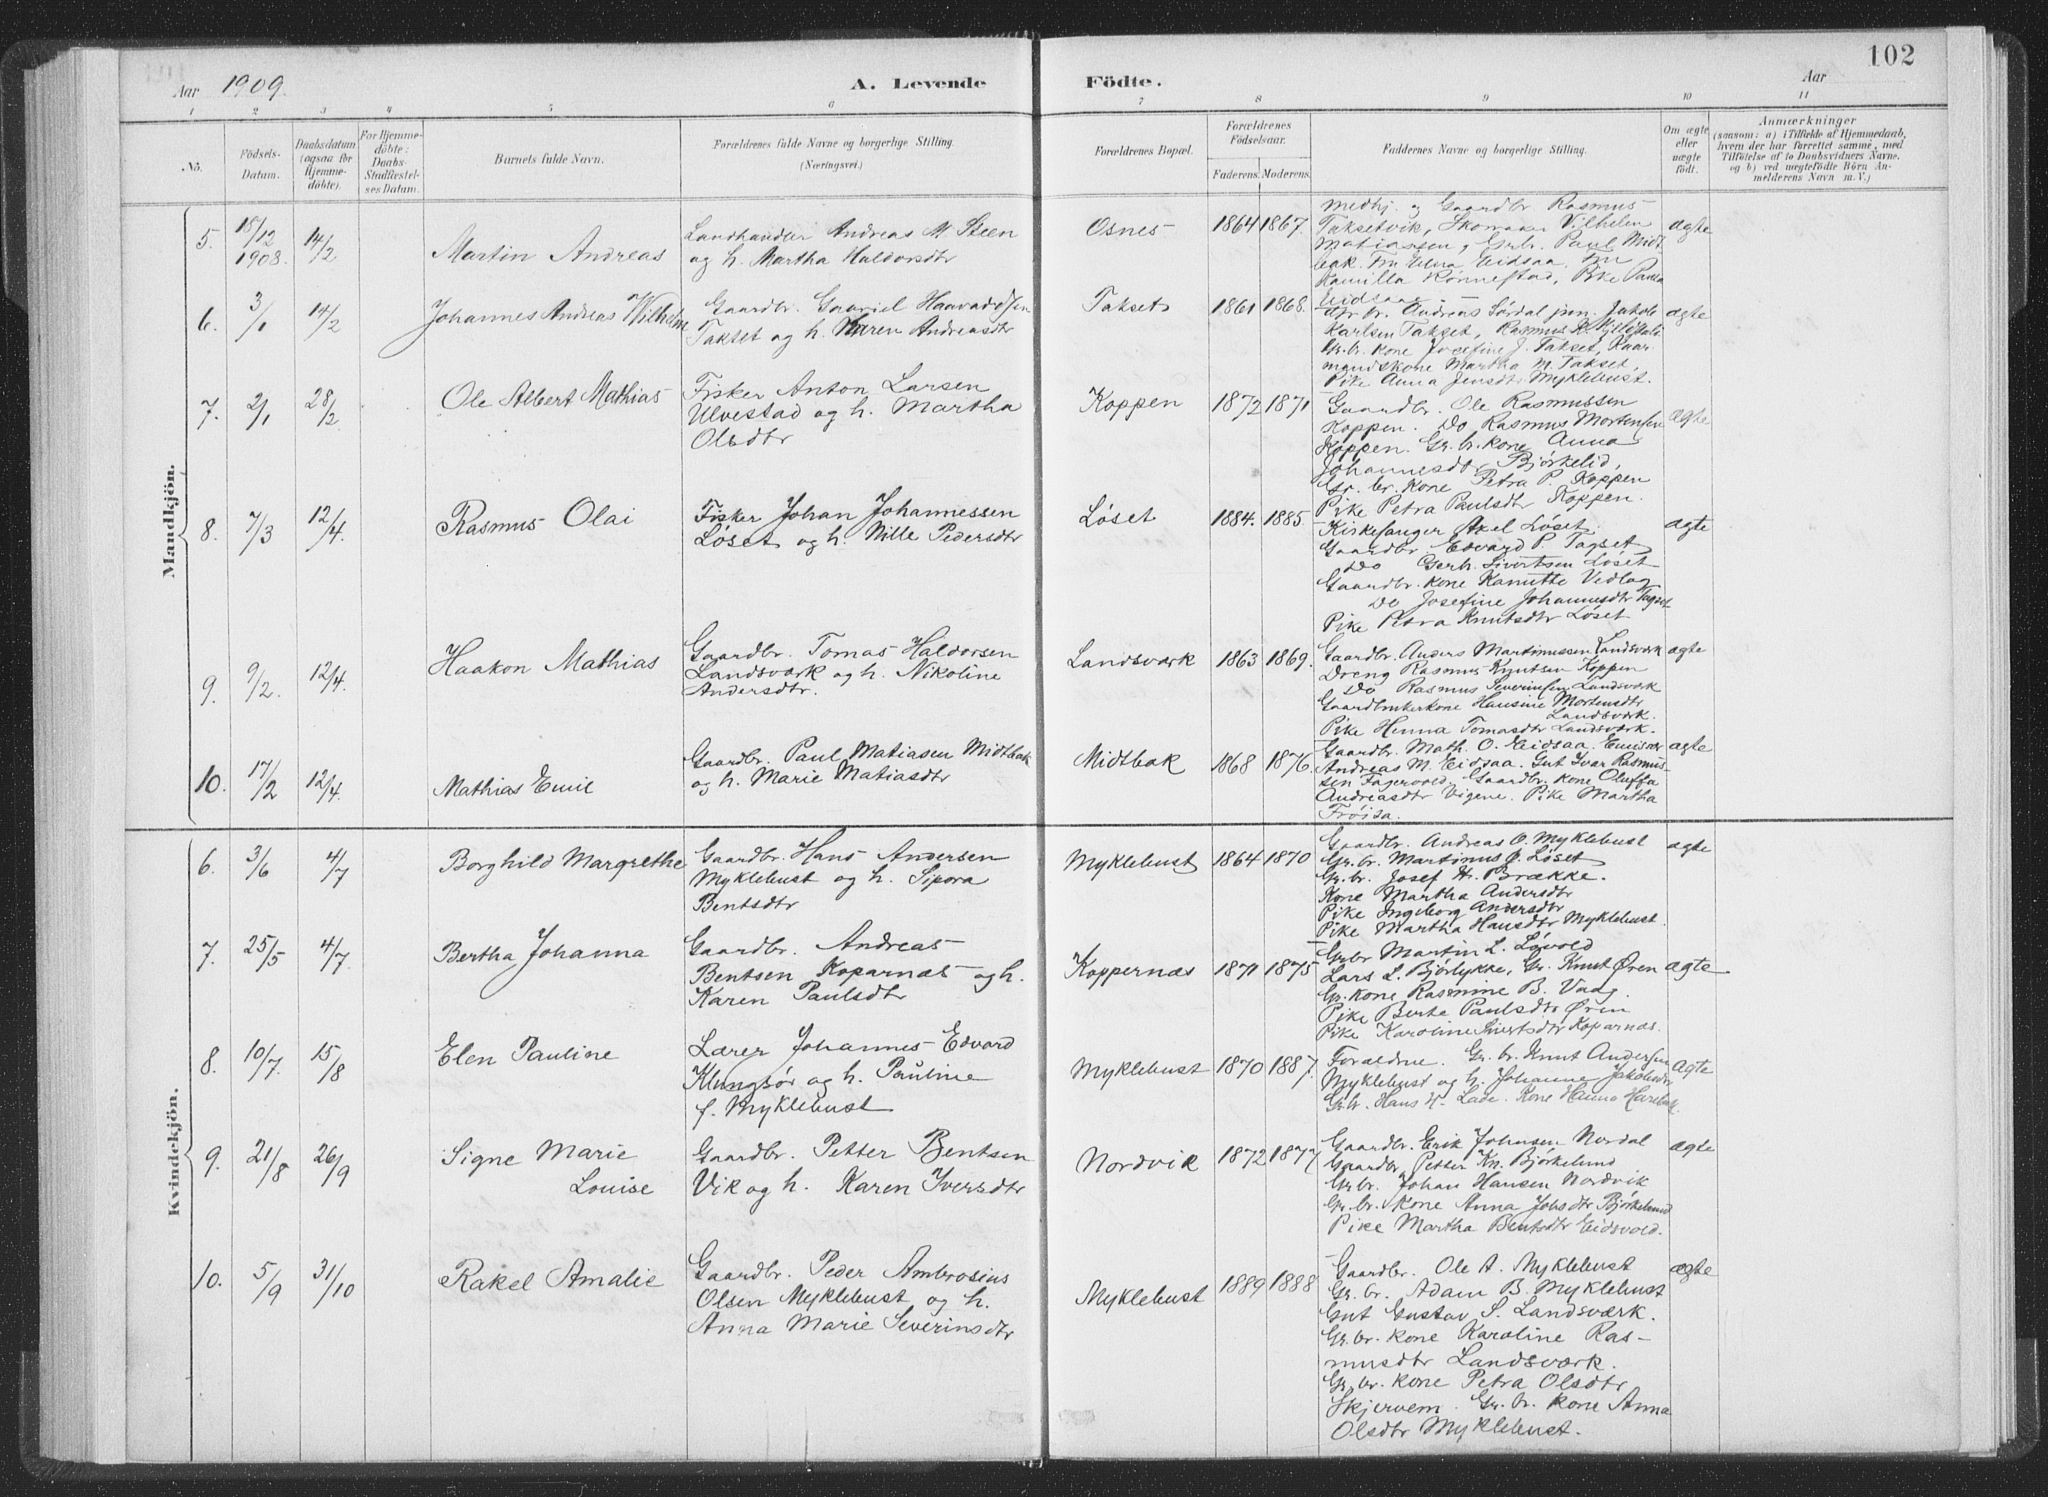 102
Aar 1909.
A. Levende Födte.
Aar
1 2 3 4 5 6 7 8 9 10 11
No.
Födsels-
Datum.
Daabsdatum
(ogsaa for
Hjemme-
döbte).
For Hjemme-
döbte:
Daabs-
Stadfæstel-
ses Datum.
Barnets fulde Navn.
Forældrenes fulde Navne og borgerlige Stilling.
(Næringsvei.)
Forældrenes Bopæl.
Forældrenes
Födselsaar.
Faderens. Moderens.
Faddernes Navne og borgerlige Stilling.
Om ægte
eller
uægte
födt.
Anmærkninger
(saasom: a) i Tilfælde af Hjemmedaab,
hvem der har forrettet samme, med
Tilföielse af to Daabsvidners Navne.
og b) ved uægtefödte Börn An-
melderens Navn m. V.)
Mandkjön.
5. 18/12 1908. 14/2
Martin Andreas
Landhandler Andreas M. Steen
og h. Martha Haldorsdtr
Osnes
1864 1867.
Medhj. og Gaardbr Rasmus
Taksetvik, Skomaker Vilhelm
Matiassen, Grbr. Paul Midt
bak. Fru Elna Eidsaa, Fru
Kamilla Rønnestad, Pike Paula
Eidsaa
ægte
6. 3/1 14/2
Johannes Andreas Wilhelm
Gaardbr. Gabriel Haavardsen
Takset og h. Karen Andreasdtr
Takset
1861 1868.
Gr. br. Andreas Sørdal jun. Jakob
Karlsen Takset, Rasmus R.
Gr. br. kone Josefine J. Takset, Kaar
mandskone Martha M. Takset,
Pike Anna Jensdtr Myklebust.
ægte
7. 2/1 28/2
Ole Albert Mathias
Fisker Anton Larsen
Ulvestad og h. Martha
Olsdtr
Koppen
1872 1871
Gaardbr. Ole Rasmussen
Koppen. Do Rasmus Mortensen
Koppen. Gr. br. kone Anna
Johannesdtr Bjørkelid,
Gr. br. kone Petra P. Koppen
Pike Petra Paulsdtr Koppen.
ægte
8. 7/3 12/4.
Rasmus Olai
Fisker Johan Johannessen
Løset og h. Nille Pedersdtr
Løset
1884. 1885.
Kirkesanger Axel Løset.
Gaardbr. Edvard P. Tagset
Do Gerh. Sivertsen Løset
Gaardbr. kone Kanutte Vedlog
Do Josefine Johannesdtr Tagset
Pike Petra Knutsdtr Løset
ægte
9. 9/2. 12/4.
Haakon Mathias
Gaardbr. Tomas Haldorsen
Landsværk og h. Nikoline
Andersdtr.
Landsværk
1863 1869.
Gaardbr. Anders Martinussen Landsværk
Dreng Rasmus Knutsen Koppen
Do Rasmus Severinsen Landsværk
Gaardbrukerkone Hansine Mortensdtr
Landsværk.
Pike Hanna Tomasdtr Landsværk.
ægte
10. 17/2 12/4.
Mathias Emil
Gaardbr. Paul Matiasen Midtbak
og h. Marie Matiasdtr
Midtbak
1868 1876
Gaardbr. Math. O. Eidsaa. Emisær
Andreas M. Eidsaa. Gut Ivar Rasmus-
sen Fagervold, Gaardbr. kone Oluffa
Andreasdtr Vigene. Pike Martha
Frøisa.
ægte
Kvindekjön.
6. 3/6 4/7
Borghild Margrethe
Gaardbr. Hans Andersen
Myklebust og h. Sipora
Bentsdtr
Myklebust
1864 1870
Gaardbr. Andreas O. Myklebust
Gr. br. Martinus J. Løset
Gr. br. Josef H. Brække.
Kone Martha Andersdtr
Pike Ingeborg Andersdtr
Pike Martha Hansdtr Myklebust.
ægte
7. 25/5 4/7.
Bertha Johanna
Gaardbr. Andreas
Bentsen Koparnæs og h.
Karen Paulsdtr
Koppernæs
1871 1875
Grbr Martin L. Løvold
Lars L. Bjørlykke, Gr. Knut Øren
Gr. kone Rasmine B. Vaag.
Pike Berte Paulsdtr Øren
Pike Karoline Sivertsdtr Koparnæs.
ægte
8. 10/7. 15/8
Elen Pauline
Lærer Johannes Edvard
Klungsør og h. Pauline
f. Myklebust
Myklebust
1870 1887.
Forældrne. Gr. br. Knut Andersen
Myklebust og h. Johanne Jakobsdtr
Gr. br. Hans H. Lade. Kone Hanna
ægte
9. 21/8 26/9
Signe Marie
Louise
Gaardbr. Petter Bentsen
Vik og h. Karen Iversdtr
Nordvik
1872 1877
Gaardbr. Erik Johnsen Nordal
Gaardbr. Petter Kn. Bjørkelund
Gr. br. Johan Hansen Nordvik
Gr. br. kone Anna Jobsdtr Bjørkelund
Pike Martha Bentsdtr Eidsvold.
ægte
10. 5/9 31/10
Rakel Amalie
Gaardbr. Peder Ambrosius
Olsen Myklebust og h.
Anna Marie Severinsdtr
Myklebust
1889 1888
Gaardbr. Ole A. Myklebust
Gr. br. Adam B. Myklebust
Gut Gustav S. Landsværk.
Gr. br. kone Karoline Ras-
musdtr Landsværk.
Gr. br. kone Petra Olsdtr
Skjervem. Gr. br. kone Anna
Olsdtr Myklebust.
ægte